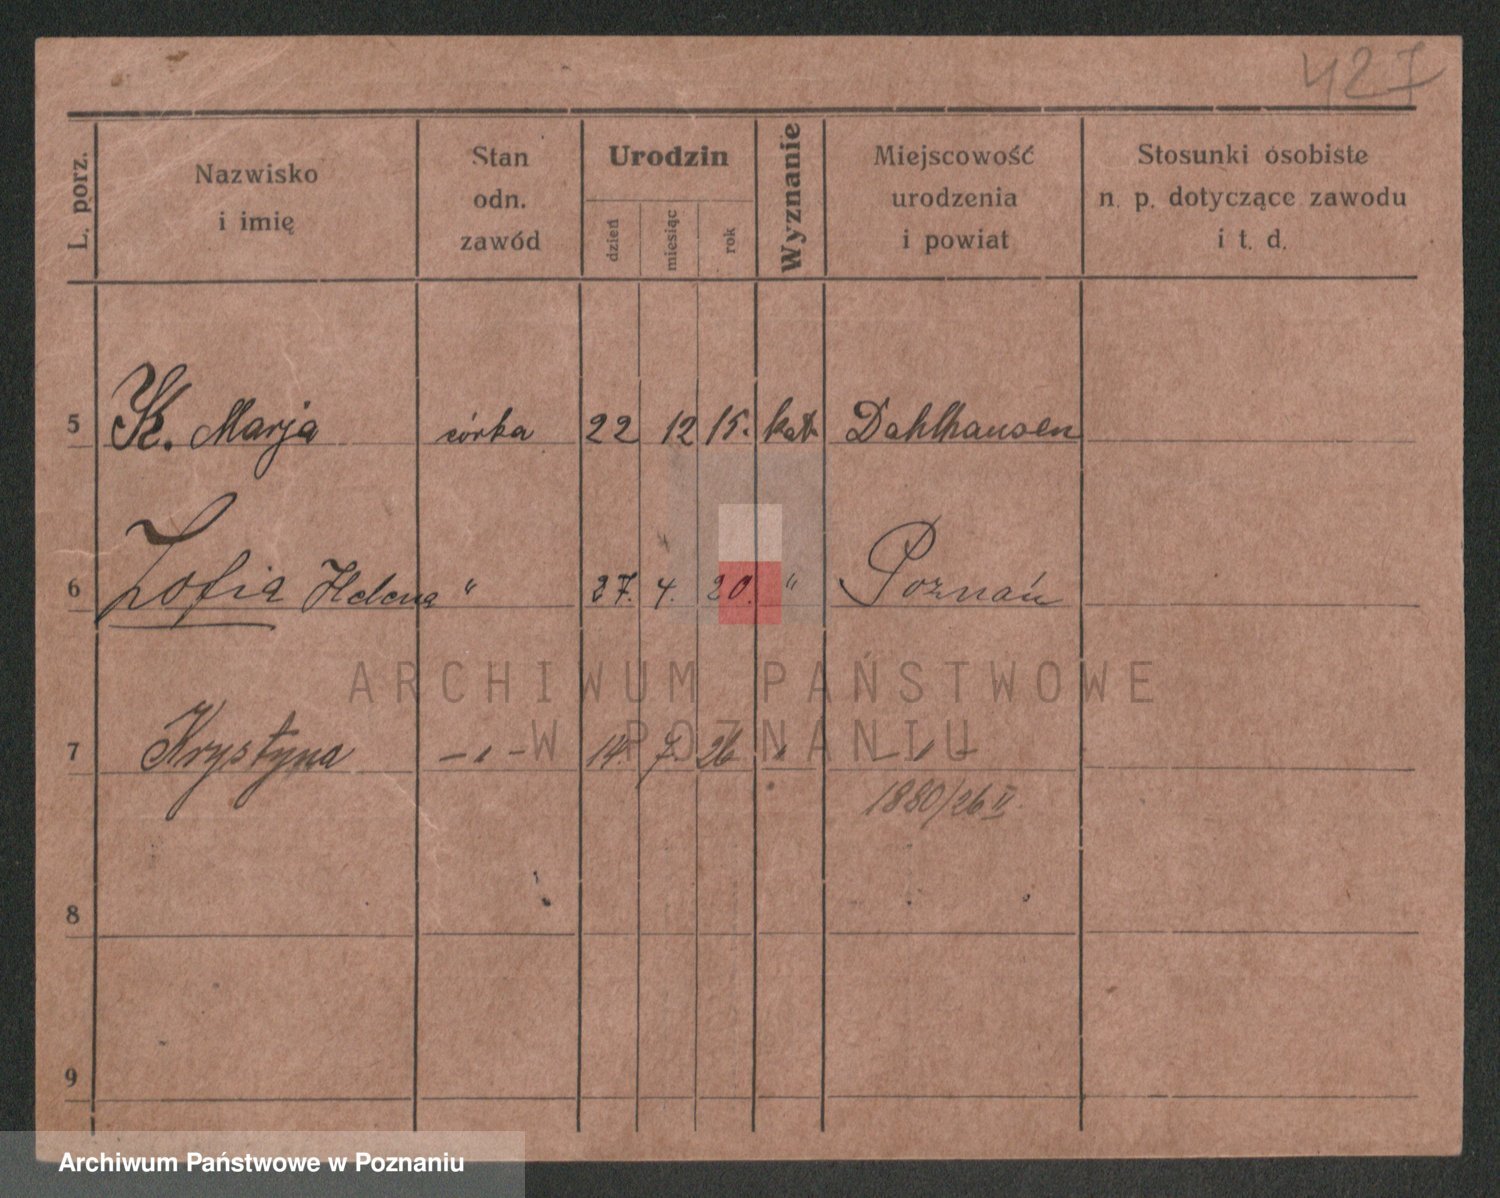 427
L. porz.
Nazwisko
i imię
Stan
odn.
zawód
Urodzin
dzień
miesiąc
rok
Wyznanie
Miejscowość
urodzenia
i powiat
Stosunki osobiste
n. p. dotyczące zawodu
i t. d.
5 K. Marja córka 22 12 15. kat. Dahlhausen
6 Zofia Helena " 27. 4. 20. " Poznań
7 Krystyna — " — 14. 7. 26 " — " —
1880/26 II
8
9
ARCHIWUM PAŃSTWOWE
W POZNANIU
Archiwum Państwowe w Poznaniu